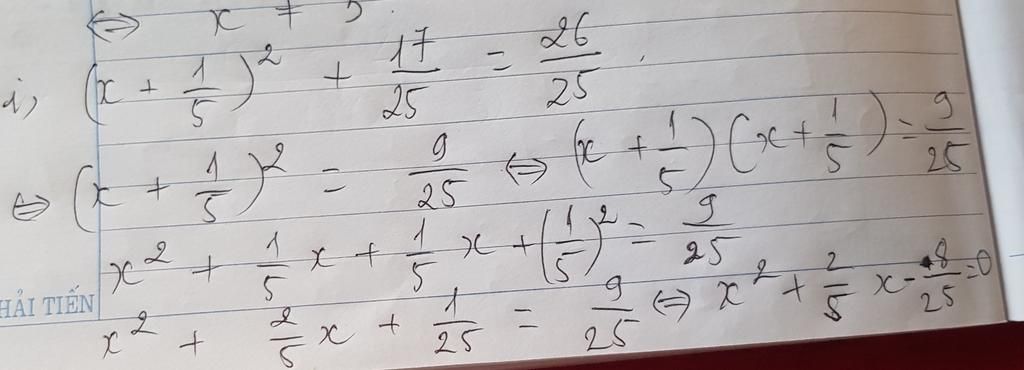 ⇔ x = 5.
i, (x + 1/5)² + 17/25 = 26/25.
⇔ (x + 1/5)² = 9/25 ⇔ (x + 1/5)(x + 1/5) = 9/25
x² + 1/5 x + 1/5 x + (1/5)² = 9/25
HẢI TIẾN
x² + 2/5 x + 1/25 = 9/25 ⇔ x² + 2/5 x - 8/25 = 0